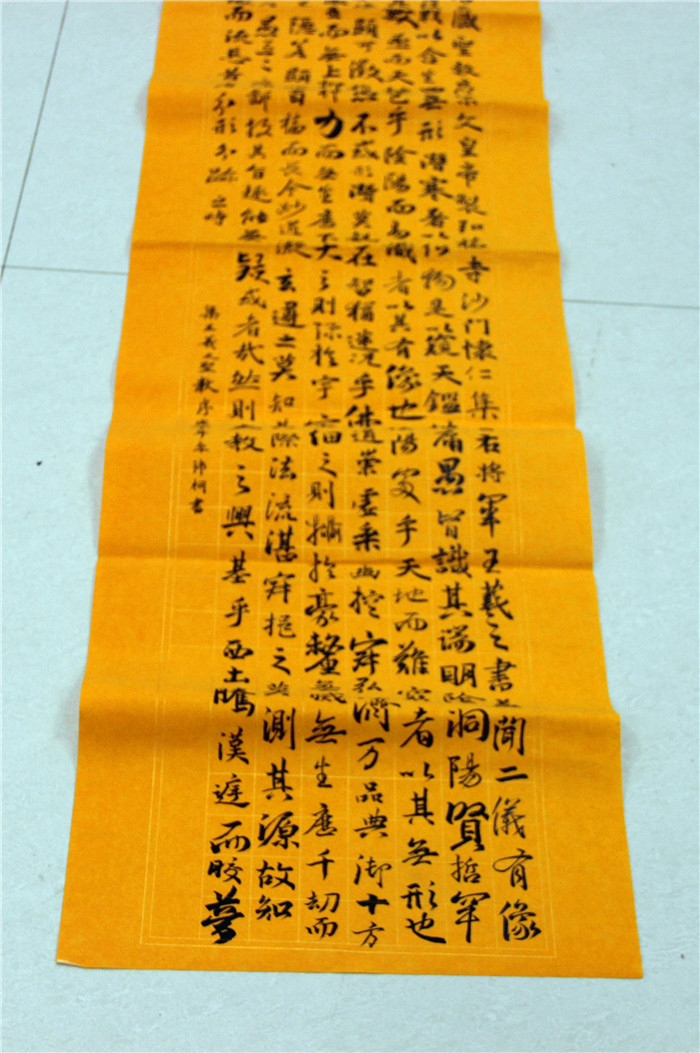 藏聖教文皇帝製弘福寺沙門懷仁集右將軍王羲之書蓋聞二儀有像
載以含生無形潛寒暑以化物是以窺天鑑庸愚皆識其端明陰洞陽賢哲罕
數然而天苞乎陰陽而易識者以其有像也陽處乎天地而難窮者以其無形也
顯可徵愚不惑形潛莫覩在智猶迷況乎佛道崇虛乘幽控寂弘濟万品典御十方
而無上抑力而無大之則弥於宇宙之則攝於豪釐無滅無生歷千劫而
隱若顯百福而長今妙道凝玄遵之莫知際法流湛寂挹之莫測其源故知
愚之鄙投其旨趣能無疑惑者哉然則教之興基乎西土騰漢庭而皎夢
而流慈昔分形分跡之時
集王羲之聖教序書